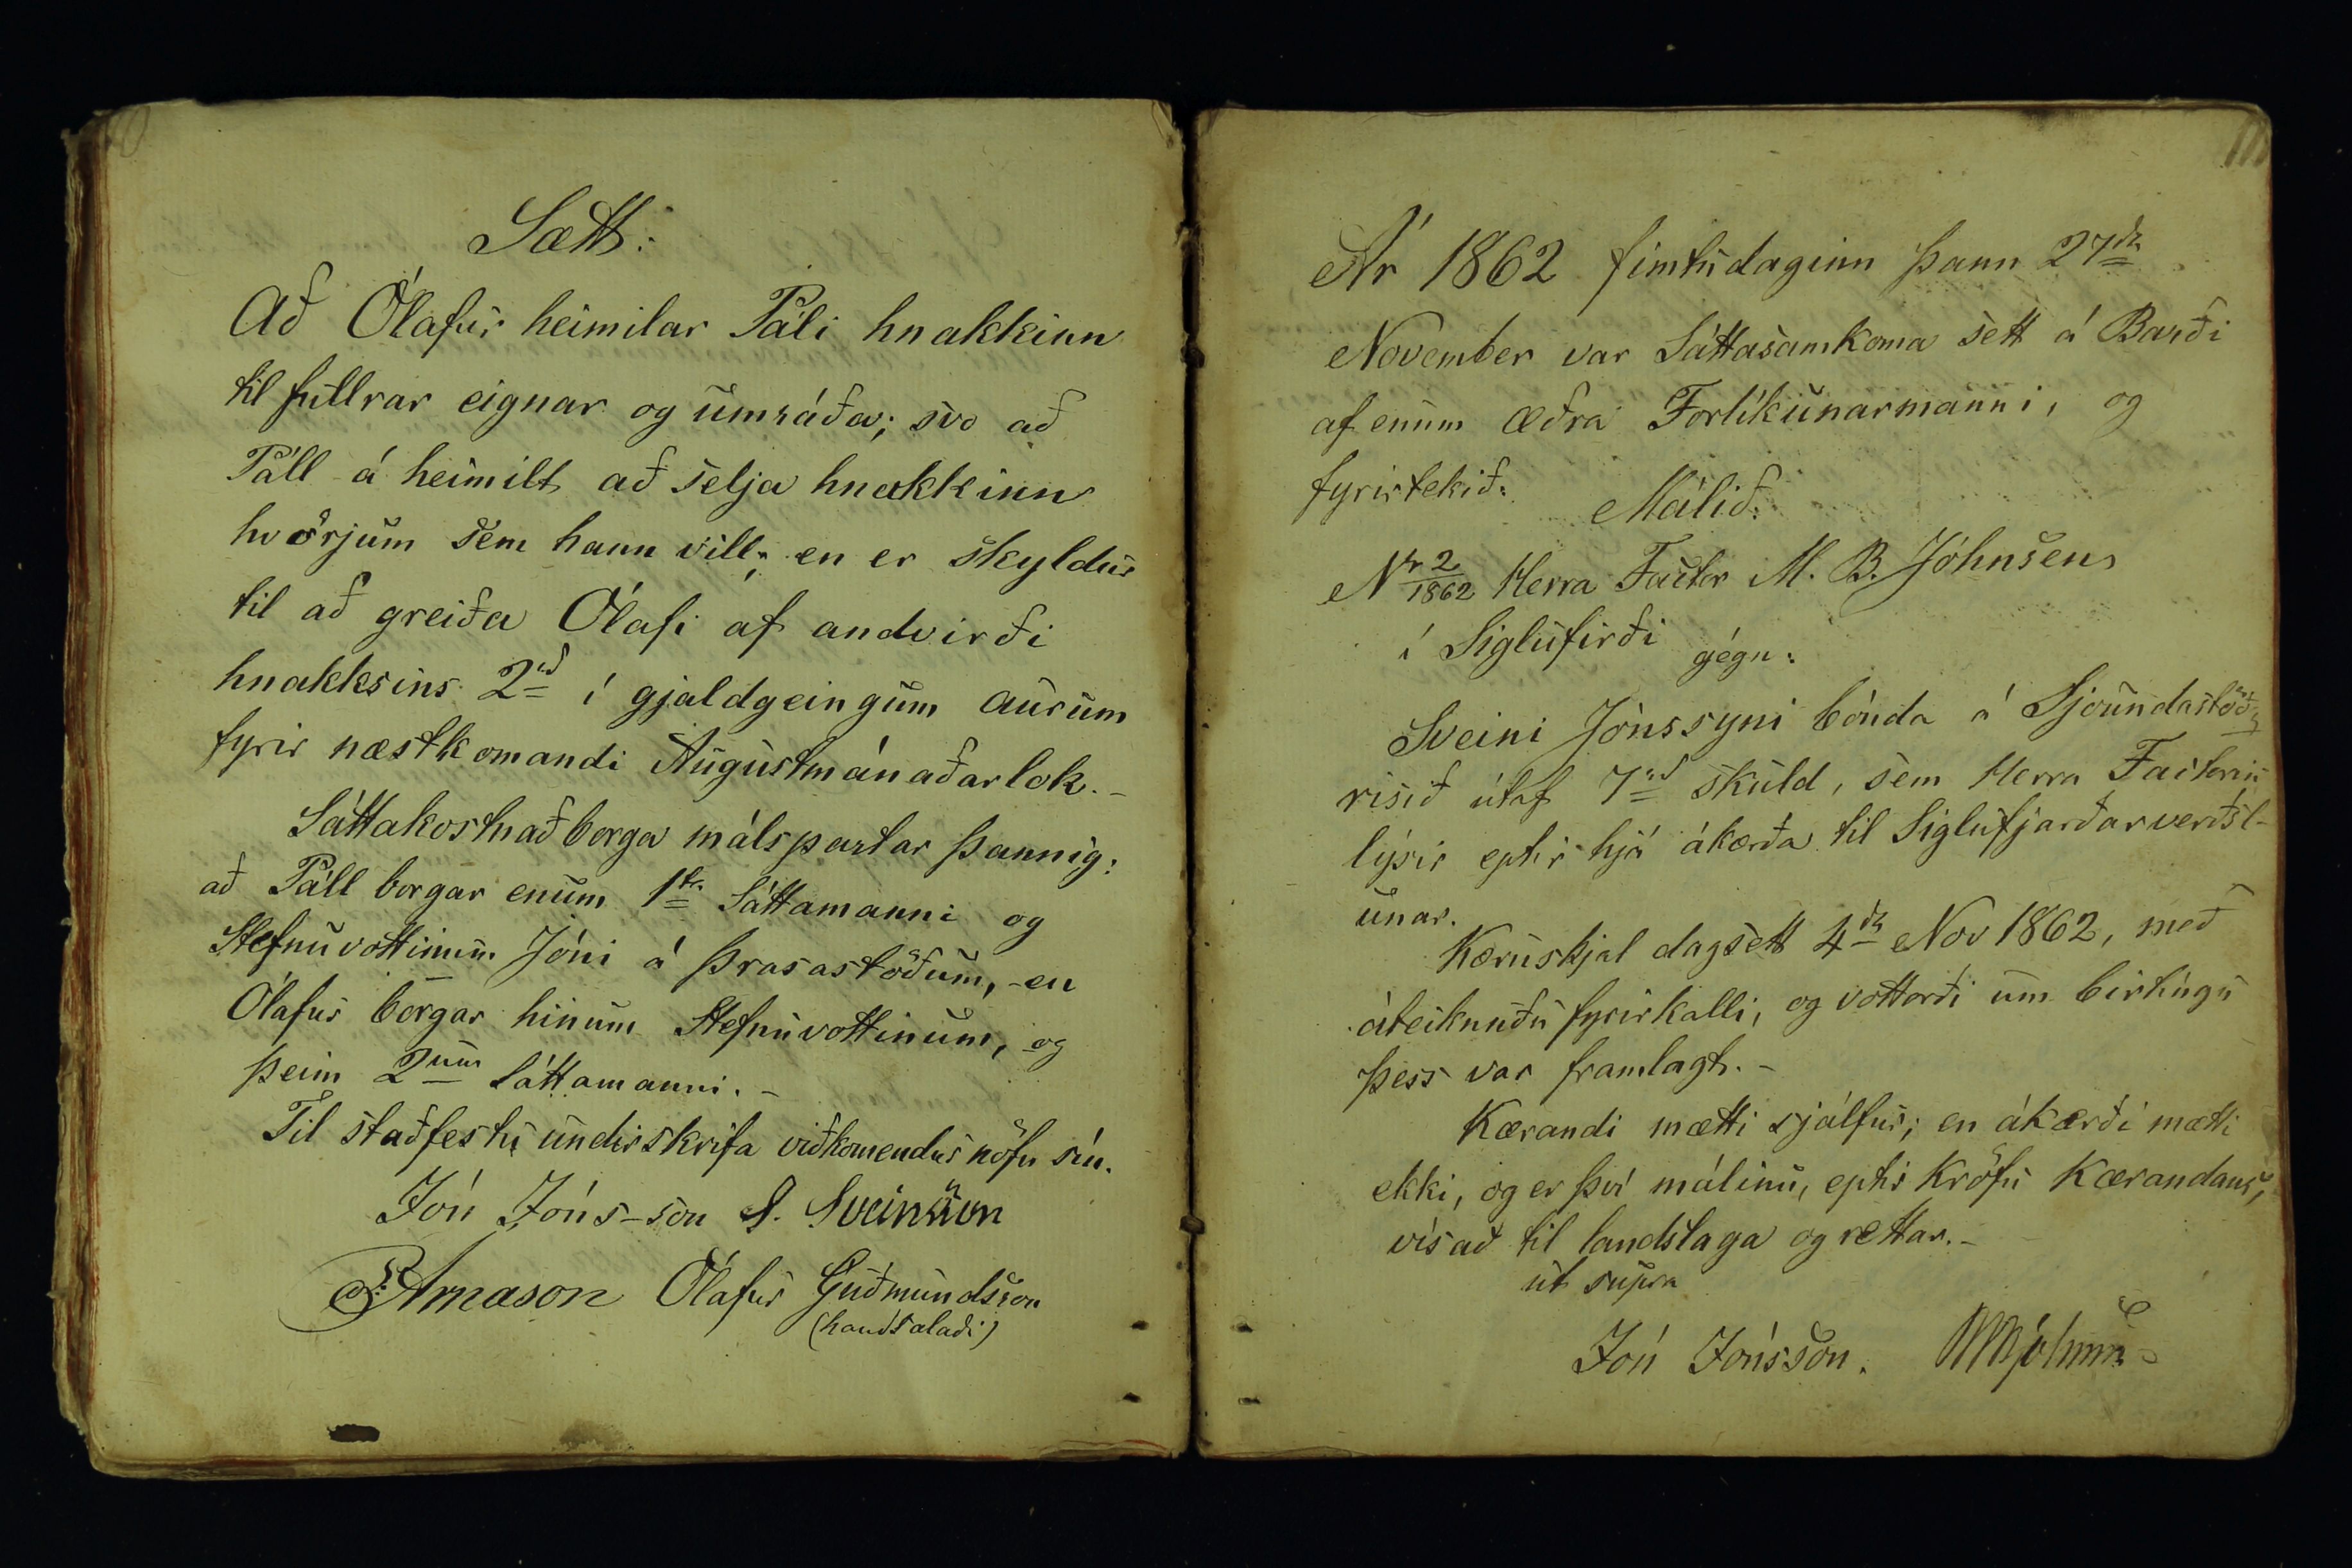 Sætt:
Að Ólafur heimilar Páli hnakkinn
til fullrar eignar og umráða; svo að
Páll á heimilt að selja hnakkinn
hvörjum sem hann vill; en er skyldur
til að greiða Ólafi af andvirði
hnakksins 2rd í gjaldgeingum aurum
fyrir næstkomandi Augustmánaðarlok.-
Sáttakostnað borga málspartar þannig:
að Páll borgar enum 1ta Sáttamanni og
Stefnuvottinum Jóni á Þrasastöðum, - en
Ólafur borgar hinum Stefnuvottinum, og
þeim 2um Sáttamanni.-
Til staðfestu undirskrifa viðkomendur nöfn sín.
Jón Jóns-son S. Sveinsson
P: Arnason Ólafur Guðmundsson
(handsalaði)
Ár 1862 fimtudaginn þann 27da
November var Sáttasamkoma sett á Barði
af enum æðra Forlíkunarmanni, og
fyrirtekið:
Málið:
Nr 2/1862 Herra Factor M. B. Jóhnsen
í Siglufirði
gégn:
Sveini Jónssyni bónda á Sjöundastöðum
risið útaf 7rd skuld, sem Herra Factorinn
lýsir eptir hjá ákærða til Siglufjarðarverðsl-
unar.
Kæruskjal dagsett 4da Nov 1862, með
áteiknuðu fyrirkalli, og vottorði um birtingu
þess var framlagt.-
Kærandi mætti sjálfur; en ákærði mætti
ekki, og er því málinu, eptir kröfu Kærandans,
vísað til landslaga og rettar.-
ut supra
Jón Jónsson.